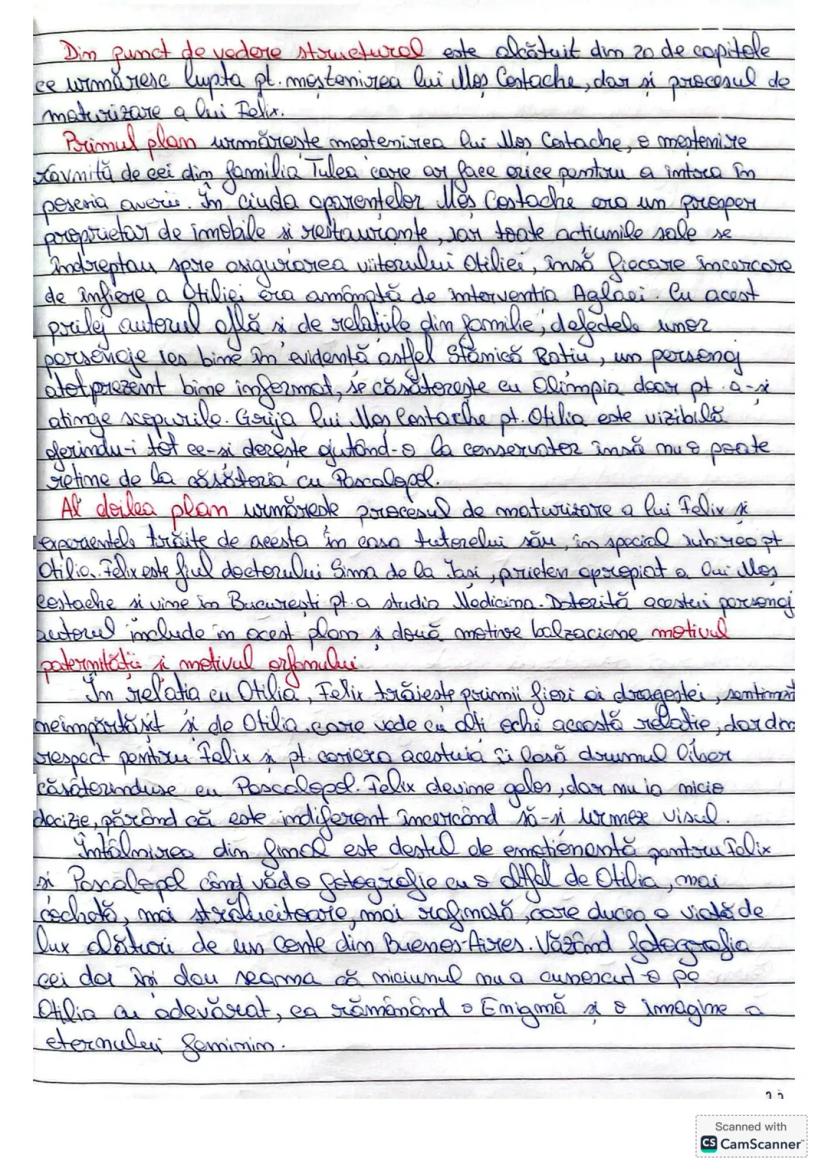 Din punct de vedere structural este alcătuit din 20 de capitole
ce urmăresc lupta pt. moștenirea lui Moș Costache, dar și procesul de
maturizare a lui Felix.
Primul plan urmărește moștenirea lui Moș Costache, o moștenire
râvnită de cei din familia Tulea care ar face orice pentru a intra în
posesia averii. În ciuda aparențelor Moș Costache era un prosper
proprietar de imobile și restaurante, iar toate acțiunile sale se
îndreptau spre asigurarea viitorului Otiliei, însă fiecare încercare
de înfiere a Otiliei era amânată de intervenția Aglaei. Cu acest
prilej autorul află și de relațiile din familie, defectele unor
personaje ies bine în evidență astfel Stănică Rațiu, un personaj
atotprezent bine informat, se căsătorește cu Olimpia doar pt. a-și
atinge scopurile. Grija lui Moș Costache pt. Otilia este vizibilă
oferindu-i tot ce-și dorește ajutând-o la conservator însă nu o poate
reține de la căsătoria cu Pascalopol.
Al doilea plan urmărește procesul de maturizare a lui Felix și
experiențele trăite de acesta în casa tutorelui său, în special iubirea pt
Otilia. Felix este fiul doctorului Sima de la Iași, prieten apropiat a lui Moș
Costache și vine în București pt. a studia Medicina. Datorită acestui personaj
autorul include în acest plan și două motive balzaciene motivul
paternității și motivul orfanului.
În relația cu Otilia, Felix trăiește primii fiori ai dragostei, sentiment
neîmpărtășit și de Otilia care vede cu alți ochi această relație, dar din
respect pentru Felix și pt. cariera acestuia îi lasă drumul liber
căsătorinduse cu Pascalopol. Felix devine gelos, dar nu ia nicio
decizie, părând că este indiferent încercând să-și urmeze visul.
Întâlnirea din final este destul de emoționantă pentru Felix
și Pascalopol când văd o fotografie cu o altfel de Otilia, mai
cochetă, mai strălucitoare, mai rafinată, care ducea o viață de
lux alături de un conte din Buenos-Aires. Văzând fotografia
cei doi își dau seama că niciunul nu a cunoscut-o pe
Otilia cu adevărat, ea rămânând o Enigmă și o imagine a
eternului feminin.
Scanned with
CS CamScanner